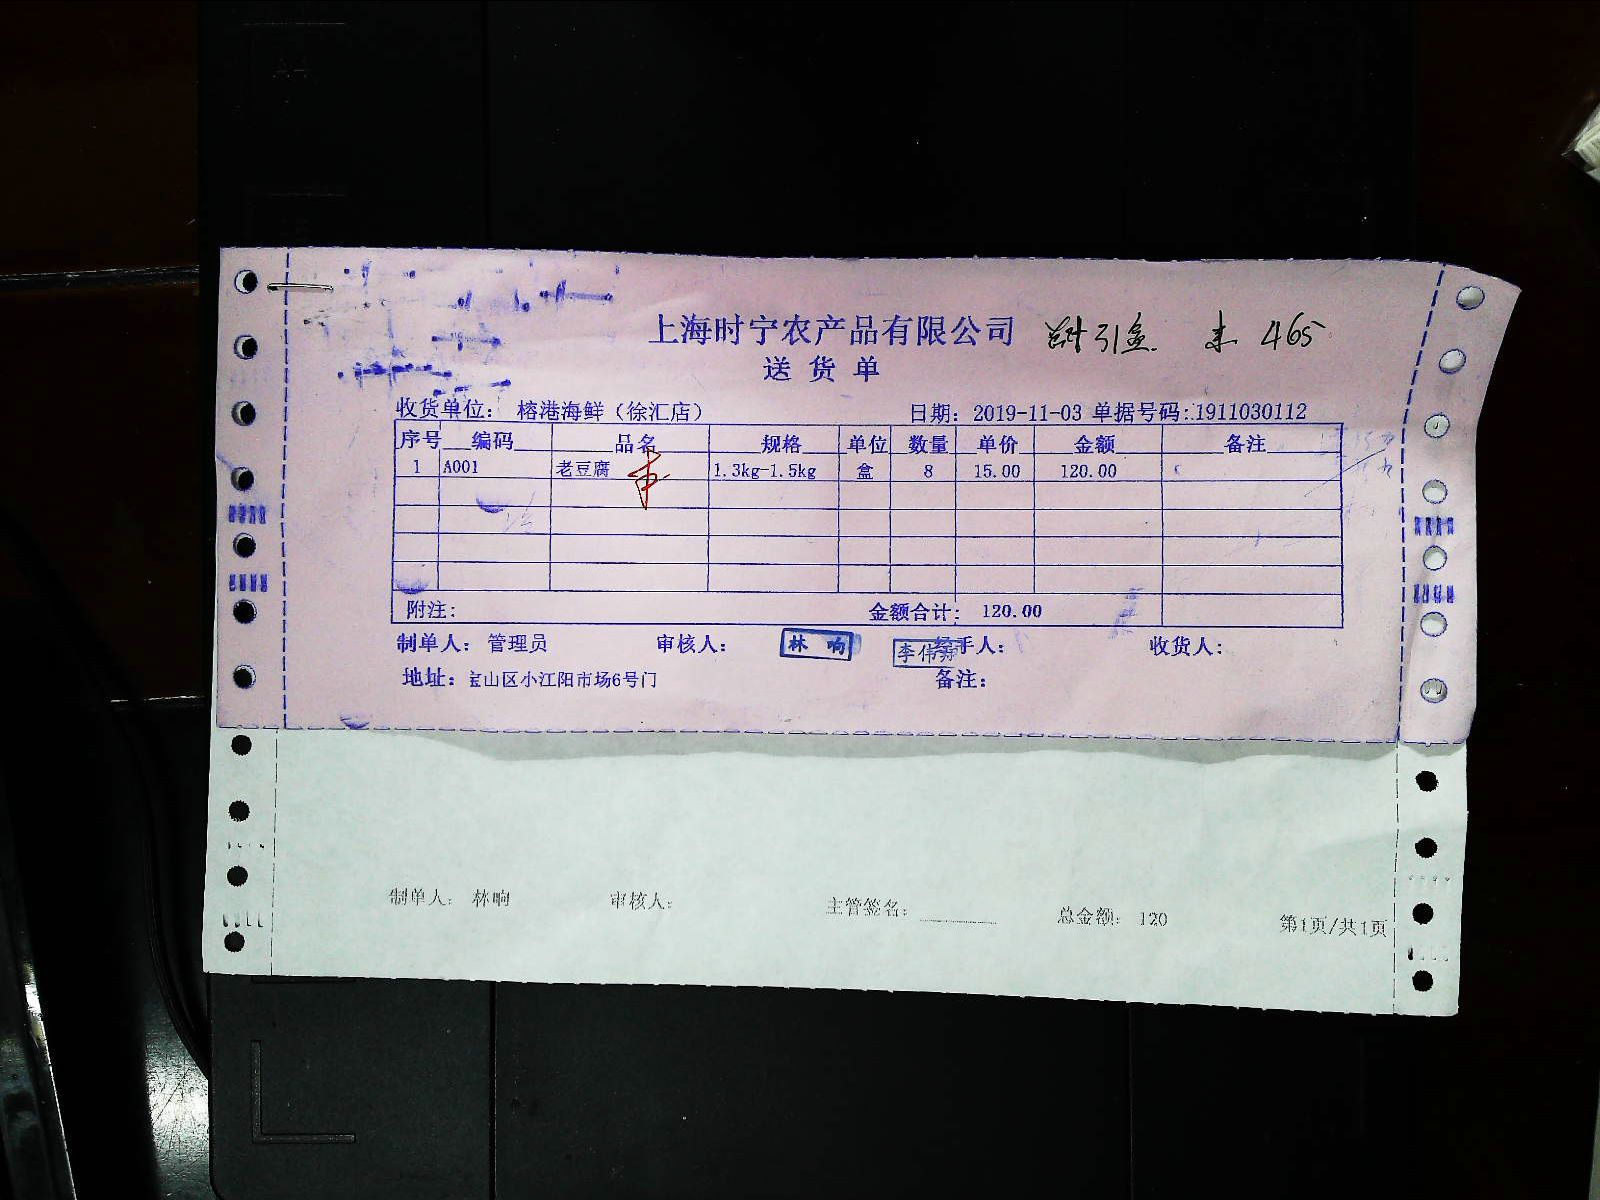 上海时宁农产品有限公司 465
送货单
收货单位: 榕港海鲜（徐汇店） 日期: 2019-11-03 单据号码: 1911030112
序号 编码 品名 规格 单位 数量 单价 金额 备注
1 A001 老豆腐 1.3kg-1.5kg 盒 8 15.00 120.00
附注: 金额合计: 120.00
制单人: 管理员 审核人: 林响 李伟 经手人: 收货人:
地址: 宝山区小江阳市场6号门 备注:
制单人: 林响 审核人: 主管签名: 总金额: 120 第1页/共1页